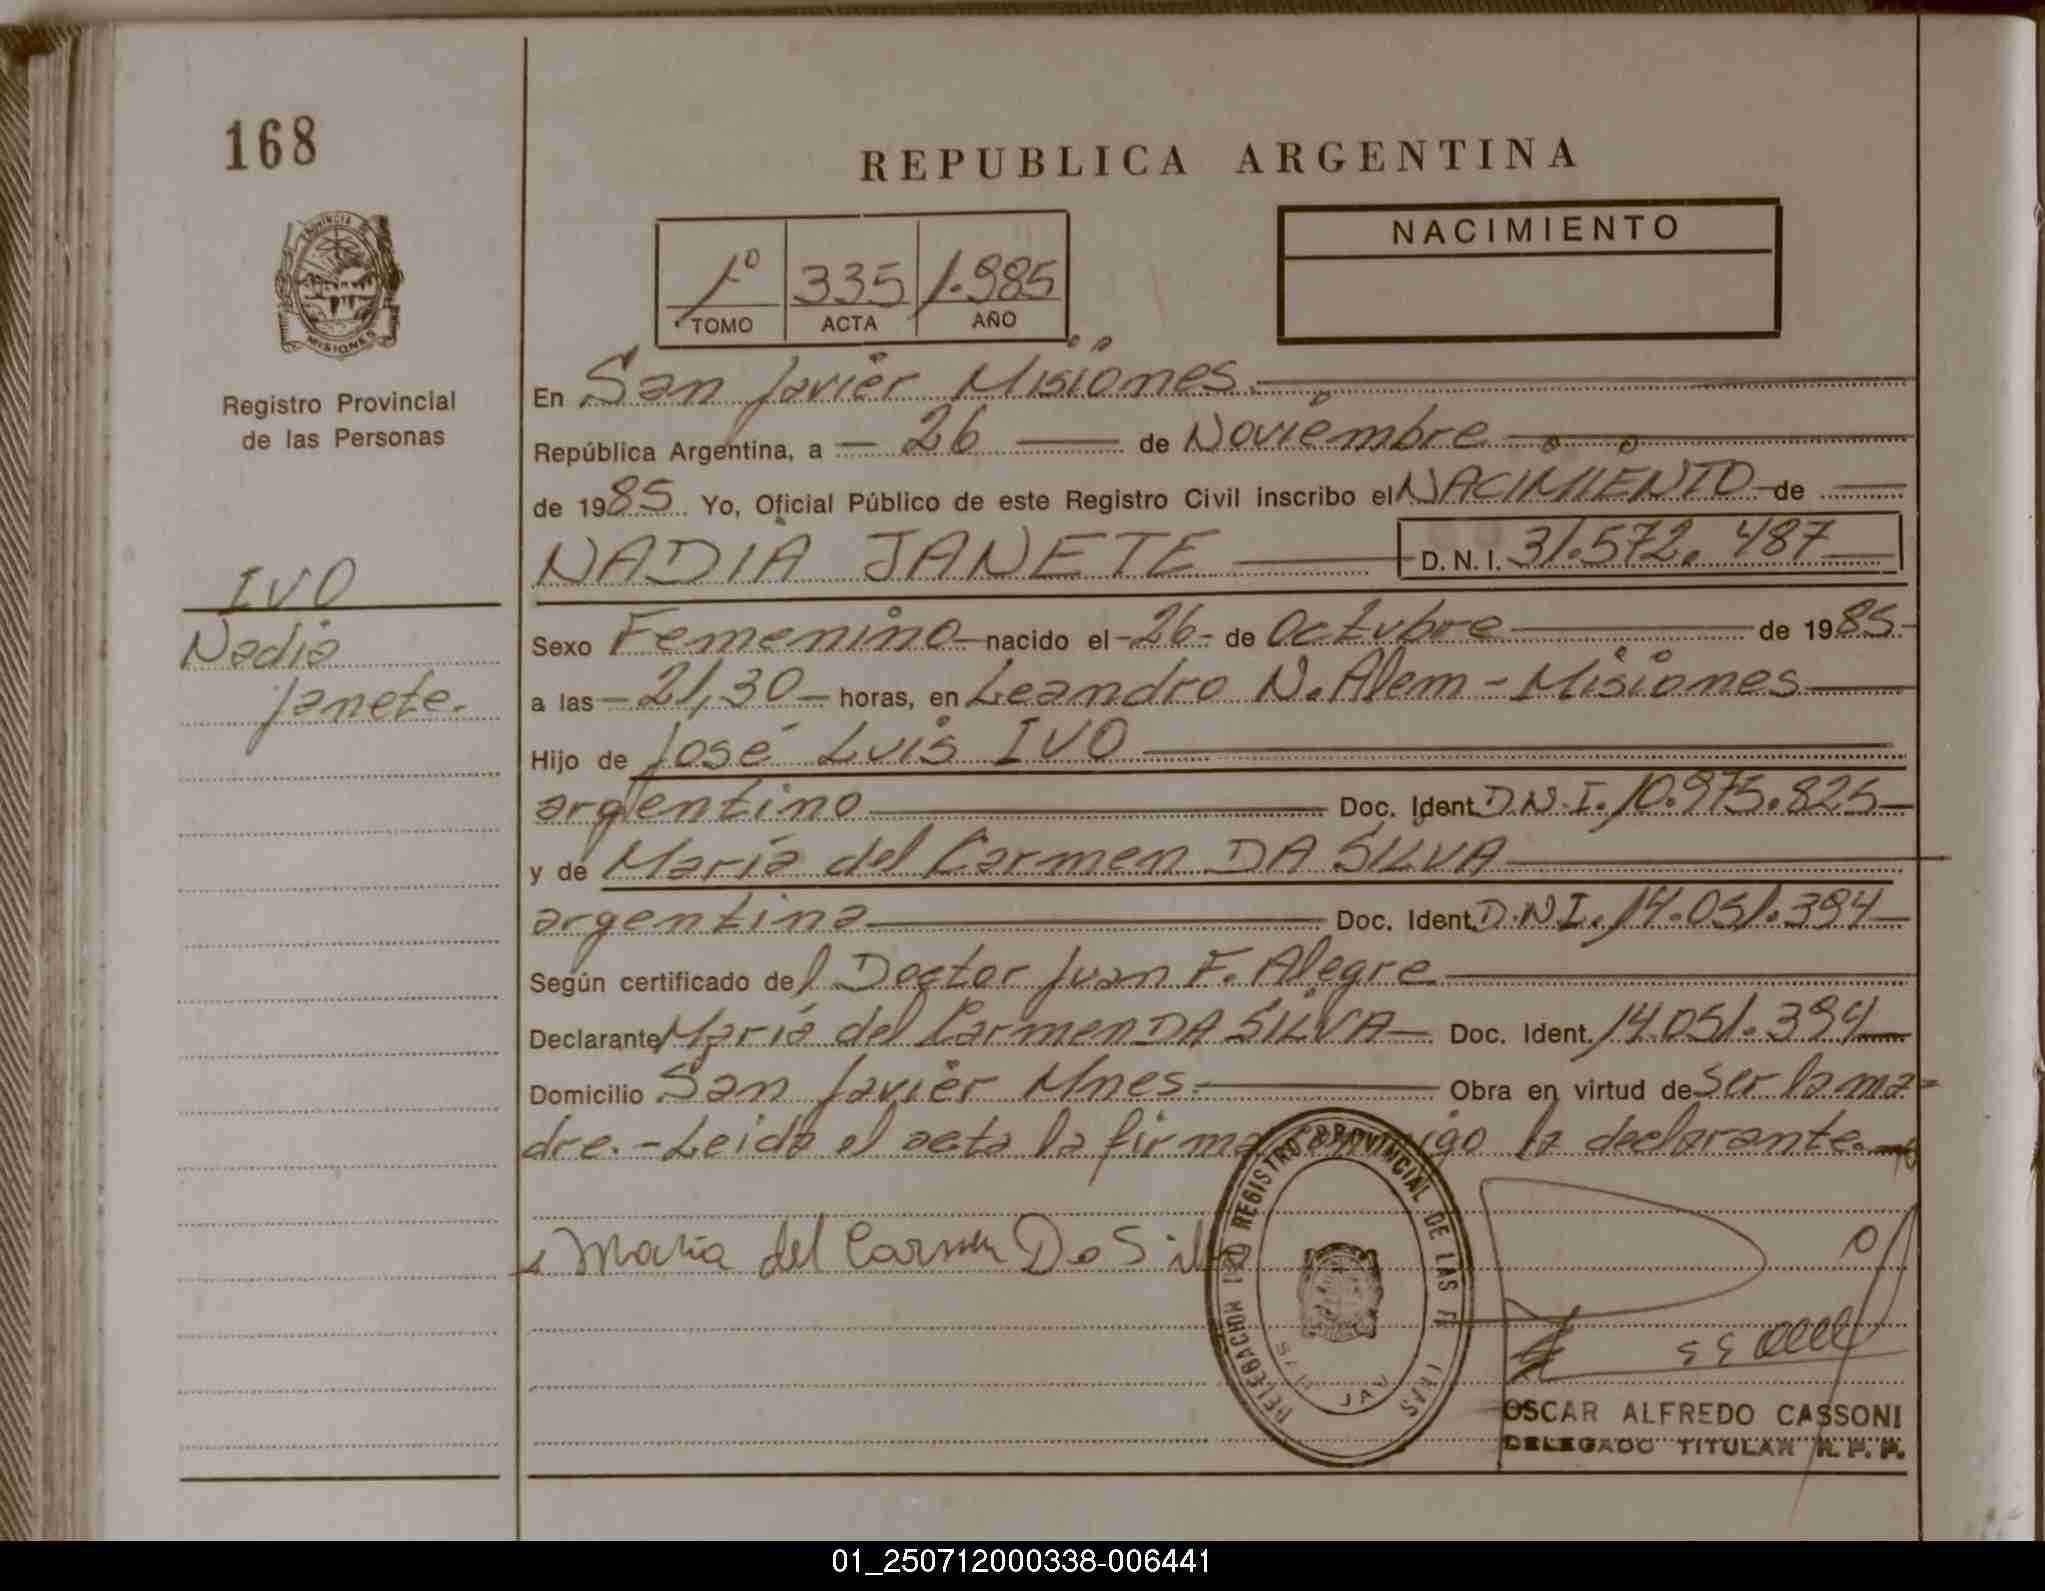 168
REPUBLICA ARGENTINA
PROVINCIA DE
MISIONES
Registro Provincial
de las Personas
1º 335 1.985
TOMO ACTA AÑO
NACIMIENTO
En San Javier Misiones.
República Argentina, a - 26 de Noviembre
de 1985. Yo, Oficial Público de este Registro Civil inscribo el NACIMIENTO de
NADIA JANETE D. N. I. 31.572.487
IVO
Nadia
Janete.
Sexo Femenino nacido el -26- de Octubre de 1985.-
a las - 21,30 - horas, en Leandro N. Alem - Misiones
Hijo de José Luis IVO
argentino Doc. Ident. D.N.I. 10.975.825
y de María del Carmen DA SILVA
argentina Doc. Ident. D.N.I. 14.051.394
Según certificado del Doctor Juan F. Alegre
Declarante María del Carmen DA SILVA Doc. Ident. 14.051.394
Domicilio San Javier Mnes. Obra en virtud de ser la ma-
dre.- Leida el acta la firma conmigo la declarante.
María del Carmen Da Sil
DELEGACION REGISTRO PROVINCIAL DE LAS
JAV
OSCAR ALFREDO CASSONI
DELEGADO TITULAR R. P. P.
01_250712000338-006441